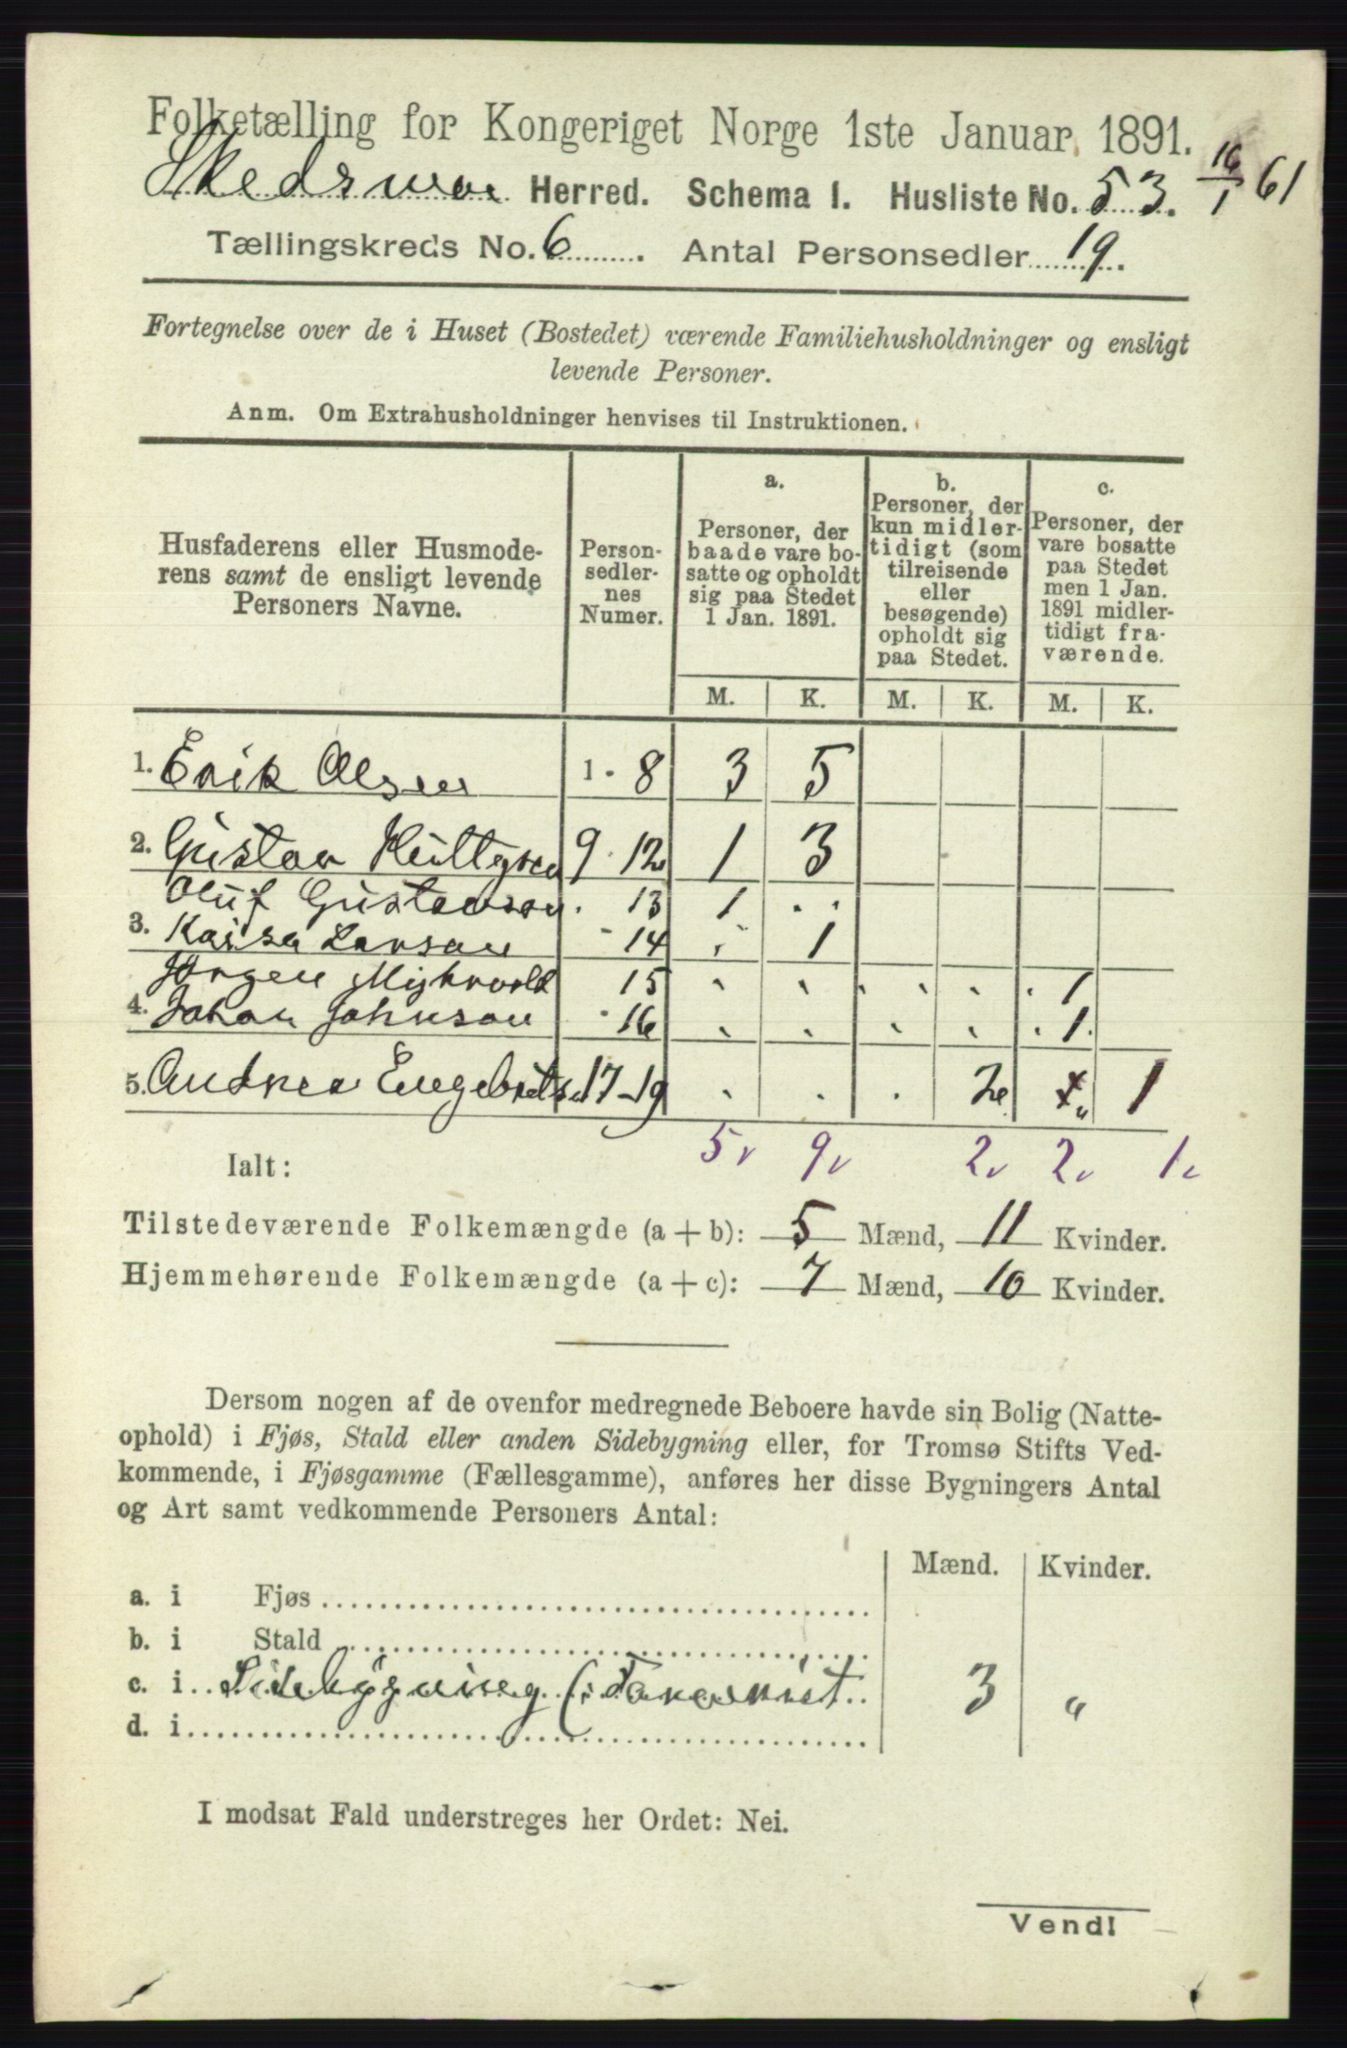 Folketælling for Kongeriget Norge 1ste Januar 1891.
Skedsmoe Herred. Schema 1. Husliste No. 53. 16/1 61
Tællingskreds No. 6. Antal Personsedler 19.
Fortegnelse over de i Huset (Bostedet) værende Familiehusholdninger og ensligt
levende Personer.
Anm. Om Extrahusholdninger henvises til Instruktionen.
Husfaderens eller Husmode-
rens samt de ensligt levende
Personers Navne.
Person-
sedler-
nes
Numer.
a.
Personer, der
baade vare bo-
satte og opholdt
sig paa Stedet
1 Jan. 1891.
b.
Personer, der
kun midler-
tidigt (som
tilreisende
eller
besøgende)
opholdt sig
paa Stedet.
c.
Personer, der
vare bosatte
paa Stedet
men 1 Jan.
1891 midler-
tidigt fra-
værende.
M. K. M. K. M. K.
1. Erik Olsen 1 - 8 3 5
2. Gustav 9 - 12 1 3
Oluf Gustavson 13 1 . .
3. Kaisa Larson 14 . 1
Jørgen Myhrvold 15 . . . . . 1
4. Johan Johnson 16 . . . . . 1.
5. Andrea Engebrets 17-19 . . . 2 „ 1
Ialt: 5 9 2 2 1
Tilstedeværende Folkemængde (a + b): 5 Mænd, 11 Kvinder.
Hjemmehørende Folkemængde (a + c): 7 Mænd, 10 Kvinder.
Dersom nogen af de ovenfor medregnede Beboere havde sin Bolig (Natte-
ophold) i Fjøs, Stald eller anden Sidebygning eller, for Tromsø Stifts Ved-
kommende, i Fjøsgamme (Fællesgamme), anføres her disse Bygningers Antal
og Art samt vedkommende Personers Antal:
Mænd. Kvinder.
a. i Fjøs
b. i Stald
c. i Sidebygning 3 „
d. i
I modsat Fald understreges her Ordet: Nei.
Vend!